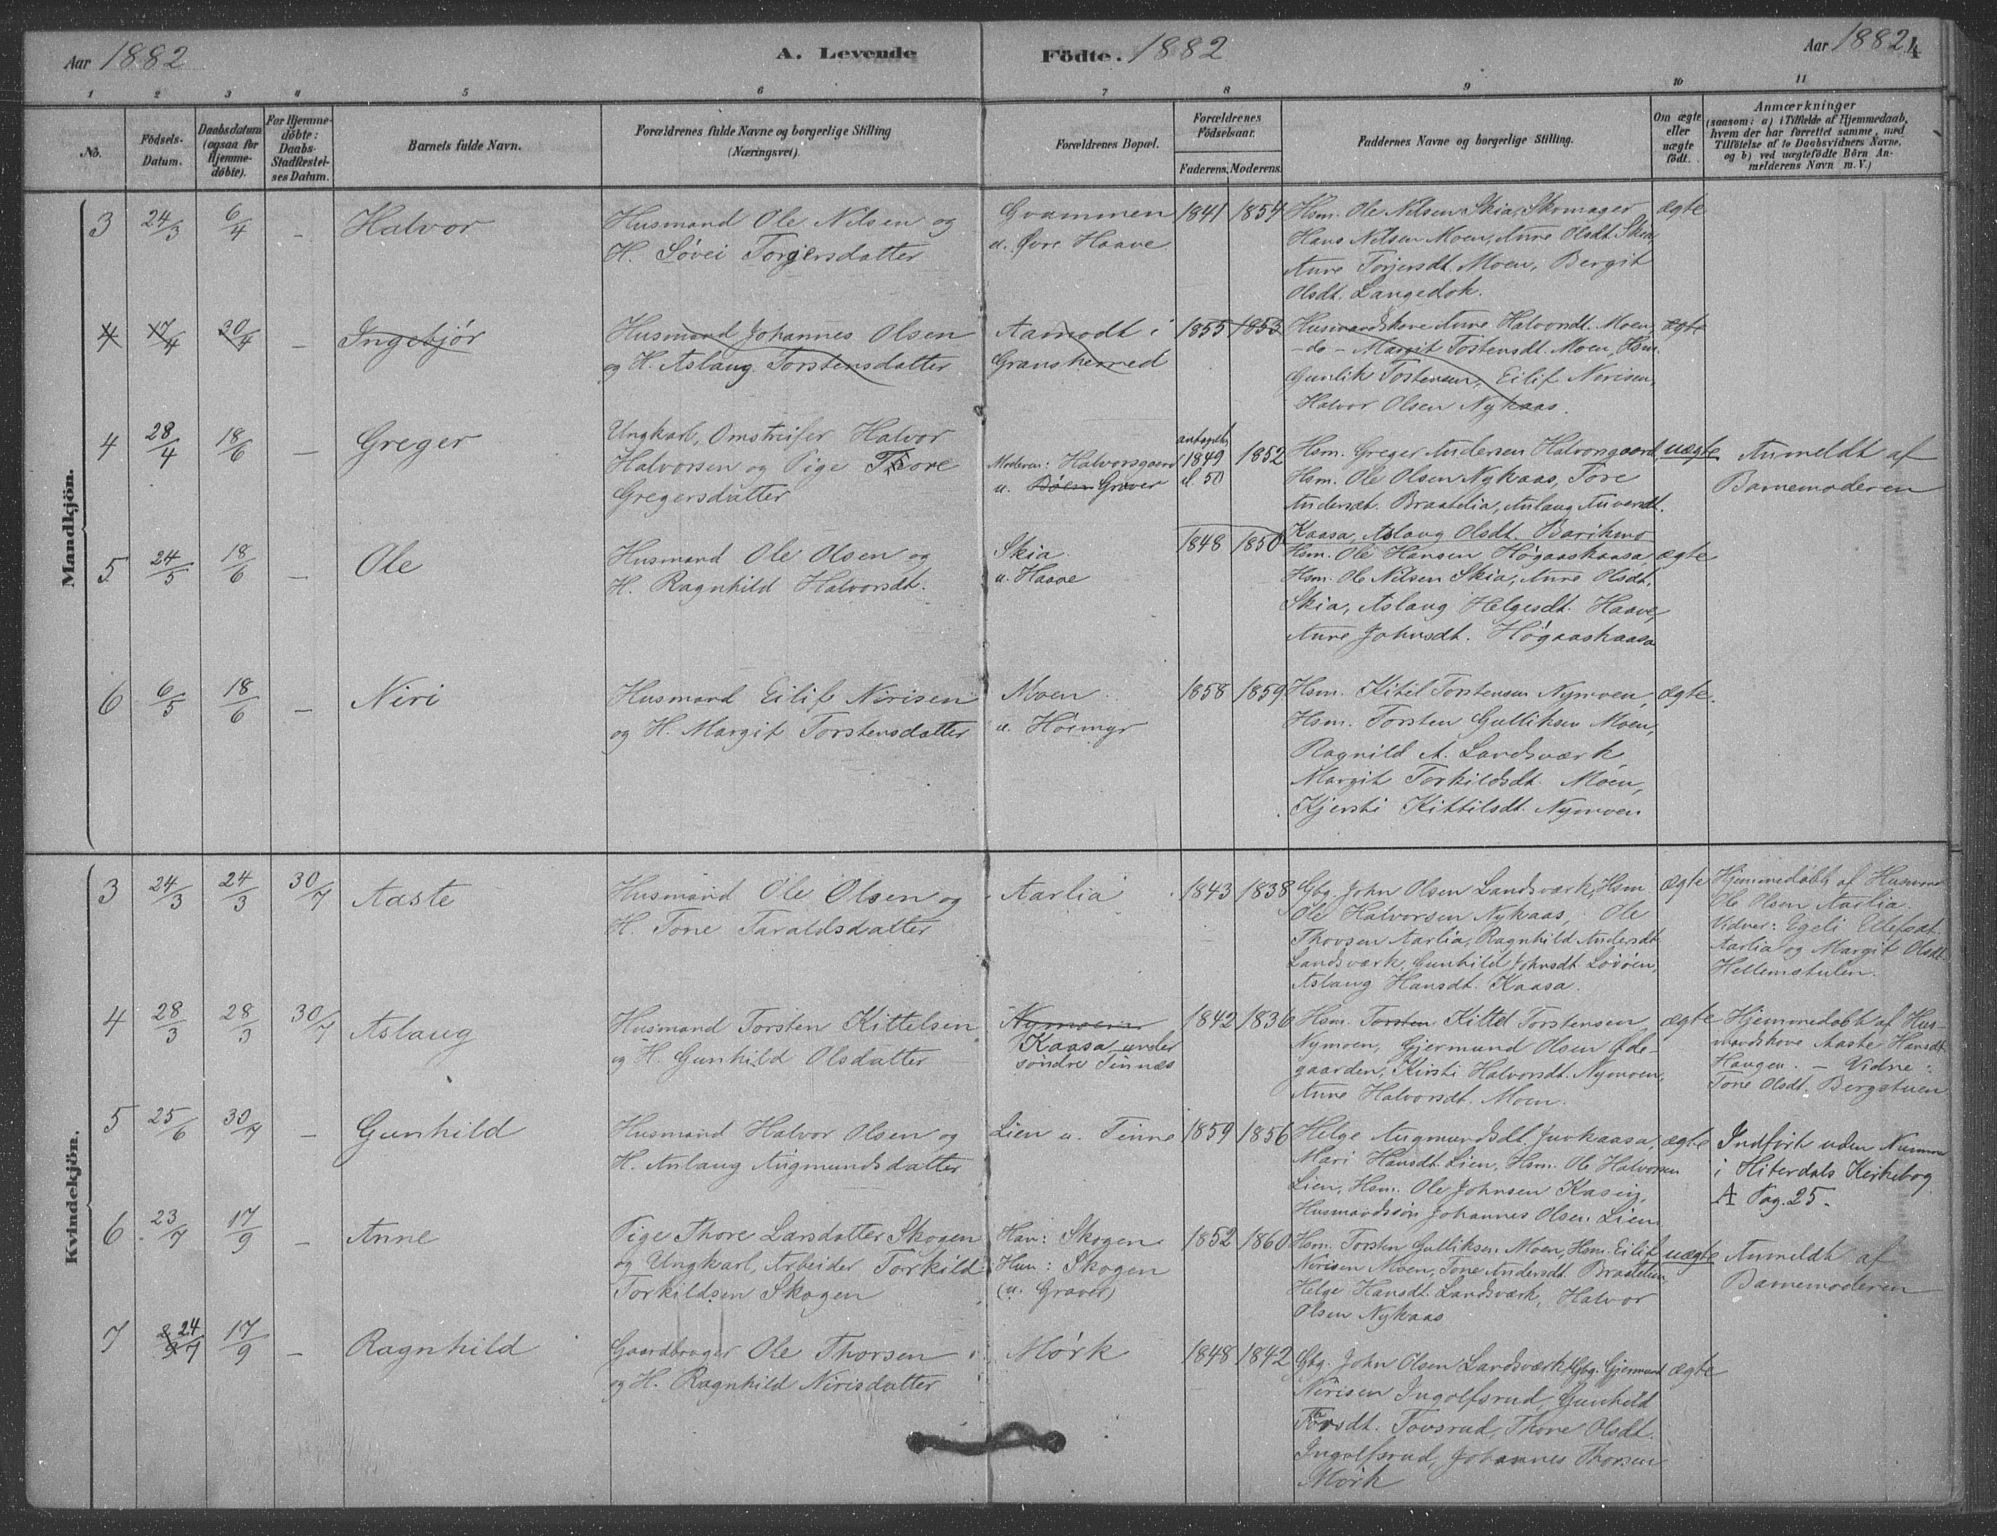 Aar 1882 A. Levende Födte. 1882 Aar 1882 4
1 2 3 4 5 6 7 8 9 10 11
No.
Födsels-Datum.
Daabsdatum (ogsaa for Hjemmedöbte).
For Hjemmedöbte: Daabs-Stadfæstelses Datum.
Barnets fulde Navn.
Forældrenes fulde Navne og borgerlige Stilling
(Næringsvei).
Forældrenes Bopæl.
Forældrenes Födselsaar.
Faderens. Moderens.
Faddernes Navne og borgerlige Stilling.
Om ægte eller uægte födt.
Anmærkninger
(saasom: a) i Tilfælde af Hjemmedaab,
hvem der har forrettet samme, med
Tilföielse af to Daabsvidners Navne,
og b) ved uægtefödte Börn Anmelderens Navn m. V.)
Mandkjön.
3 24/3 6/4 - Halvor
Husmand Ole Nilsen og
H. Søvei Torgersdatter
Gvammen
u. Øvre Haave
1841 1854
Hsm. Ole Nilsen Skia, Skomager
Hans Nilsen Moen, Anne Olsdt. Skia,
Anne Torjersdt. Moen, Bergit
Olsdt. Langedok.
ægte
4 17/4 30/4 - Ingebjør
Husmand Johannes Olsen
og H. Aslaug Torstensdatter
Aamodt i
Gransherred
1855 1853
Husmandskone Anne Halvorsdt. Moen,
- do - Margit Torstensdt. Moen, Hsm.
Gunlik Torstensen, Eilif Nirisen,
Halvor Olsen Nykaas.
ægte
4 28/4 18/6 - Greger
Ungkarl, Omstreifer Halvor
Halvorsen og Pige Tore
Gregersdatter
Moderen: Halvorsgaard
u. Bøen Graver
antagelig 1849 el. 50 1852
Hsm. Greger Andersen Halvorsgaard,
Hsm. Ole Olsen Nykaas, Tore
Andersdt. Braatelia, Aslaug Anversdt.
Kaasa, Aslaug Olsdt. Barikmo
uægte
Anmeldt af
Barnemoderen
5 24/5 18/6 - Ole
Husmand Ole Olsen og
H. Ragnhild Halvorsdt.
Skia
u. Haave
1848 1850
Hsm. Ole Hansen Høgaaskaasa,
Hsm. Ole Nilsen Skia, Anne Olsdt.
Skia, Aslaug Helgesdt. Haave,
Anne Johnsdt. Høgaaskaasa
ægte
6 6/5 18/6 - Niri
Husmand Eilif Nirisen
og H. Margit Torstensdatter
Moen
u. Høimyr
1858 1859
Hsm. Kitil Torstensen Nymoen,
Hsm. Torsten Gulliksen Moen,
Ragnild A. Landsværk
Margit Torkildsdt. Moen,
Kjersti Kittilsdt. Nymoen
ægte.
Kvindekjön.
3 24/3 24/3 30/7 Aaste
Husmand Ole Olsen og
H. Tone Taraldsdatter
Aarlia
1843 1838
Gbg. John Olsen Landsværk, Hsm
Ole Halvorsen Nykaas, Ole
Thovsen Aarlia, Ragnhild Andersdt.
Landsværk, Gunhild Johnsdt. Løvøen,
Aslaug Hansdt. Kaasa.
ægte
Hjemmedøbt af Husm.
Ole Olsen Aarlia.
Vidner: Egeli Ellefsdt.
Aarlia og Margit Olsdt.
Hellemstulen.
4 28/3 28/3 30/7 Aslaug
Husmand Torsten Kittelsen
og H. Gunhild Olsdatter
Nymoen
Kaasa under
søndre Tinnæs
1842 1836
Hsm. Torsten Kittel Torstensen
Nymoen, Gjermund Olsen Øde-
gaarden, Kirsti Halvorsdt. Nymoen,
Anne Halvorsdt. Moen.
ægte
Hjemmedøbt af Hus-
mandskone Aaste Hansdt.
Haugen. - Vidne:
Tone Olsdt. Bergstuen
5 25/6 30/7 - Gunhild
Husmand Halvor Olsen og
H. Aslaug Augmundsdatter
Lien u. Tinne
1859 1856
Helge Augmundsdt. Juvkaasa,
Mari Hansdt. Lien, Hsm. Ole Halvorsen
Lien, Hsm. Ole Johnsen Kasin,
Husmandssøn Johannes Olsen Lien
ægte
Indført uden Numme
i Hiterdals Kirkebog
A Pag. 25.
6 23/7 17/9 - Anne
Pige Thore Larsdatter Skogen
og Ungkarl, Arbeider Torkild
Torkildsen Skogen
Han: Skogen
Hun: Skogen
(u. Graver)
1852 1860
Hsm. Torsten Gulliksen Moen, Hsm. Eilif
Nirisen Moen, Tone Andersdt. Braatelien,
Helge Hansdt. Landsværk, Halvor
Olsen Nykaas
uægte
Anmeldt af
Barnemoderen
7 24/7 17/9 - Ragnhild
Gaardbruger Ole Thorsen
og H. Ragnhild Nirisdatter
Mørk
1848 1842
Gbg. John Olsen Landsværk, Gbg. Gjermund
Nirisen Ingolfsrud, Gunhild
Tovsdt. Tovsrud, Thone Olsdt.
Ingolfsrud, Johannes Thorsen
Mørk
ægte